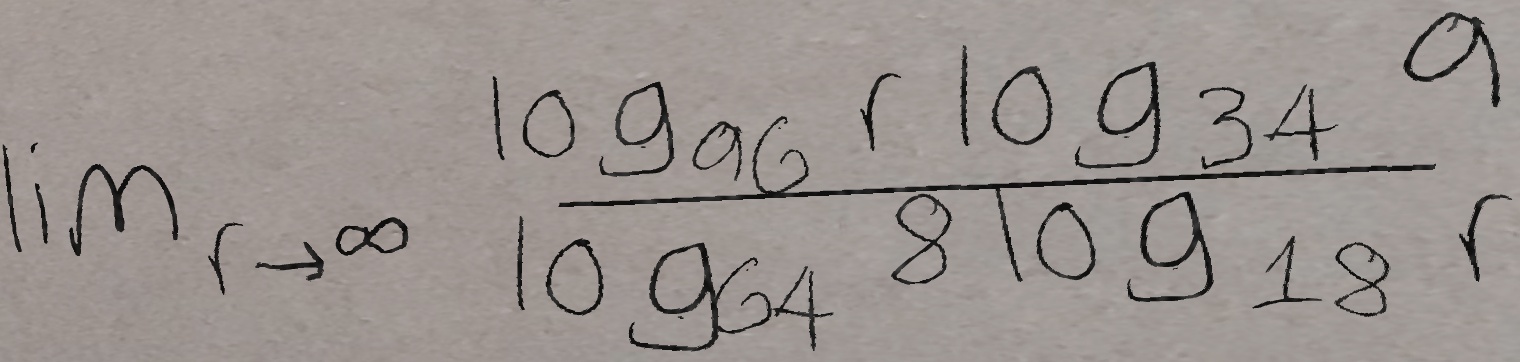 \lim_{r \to \infty} \frac{\log_{96} r \log_{34} 9}{\log_{64} 8 \log_{18} r}